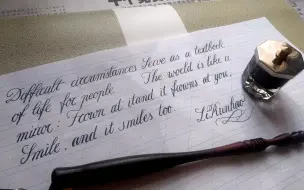 Defficult circumstances serve as a textbook
of life for people. The world is like a
mirror: Frown at itand it frowns at you,
Smile, and it smiles too. LiRunhao